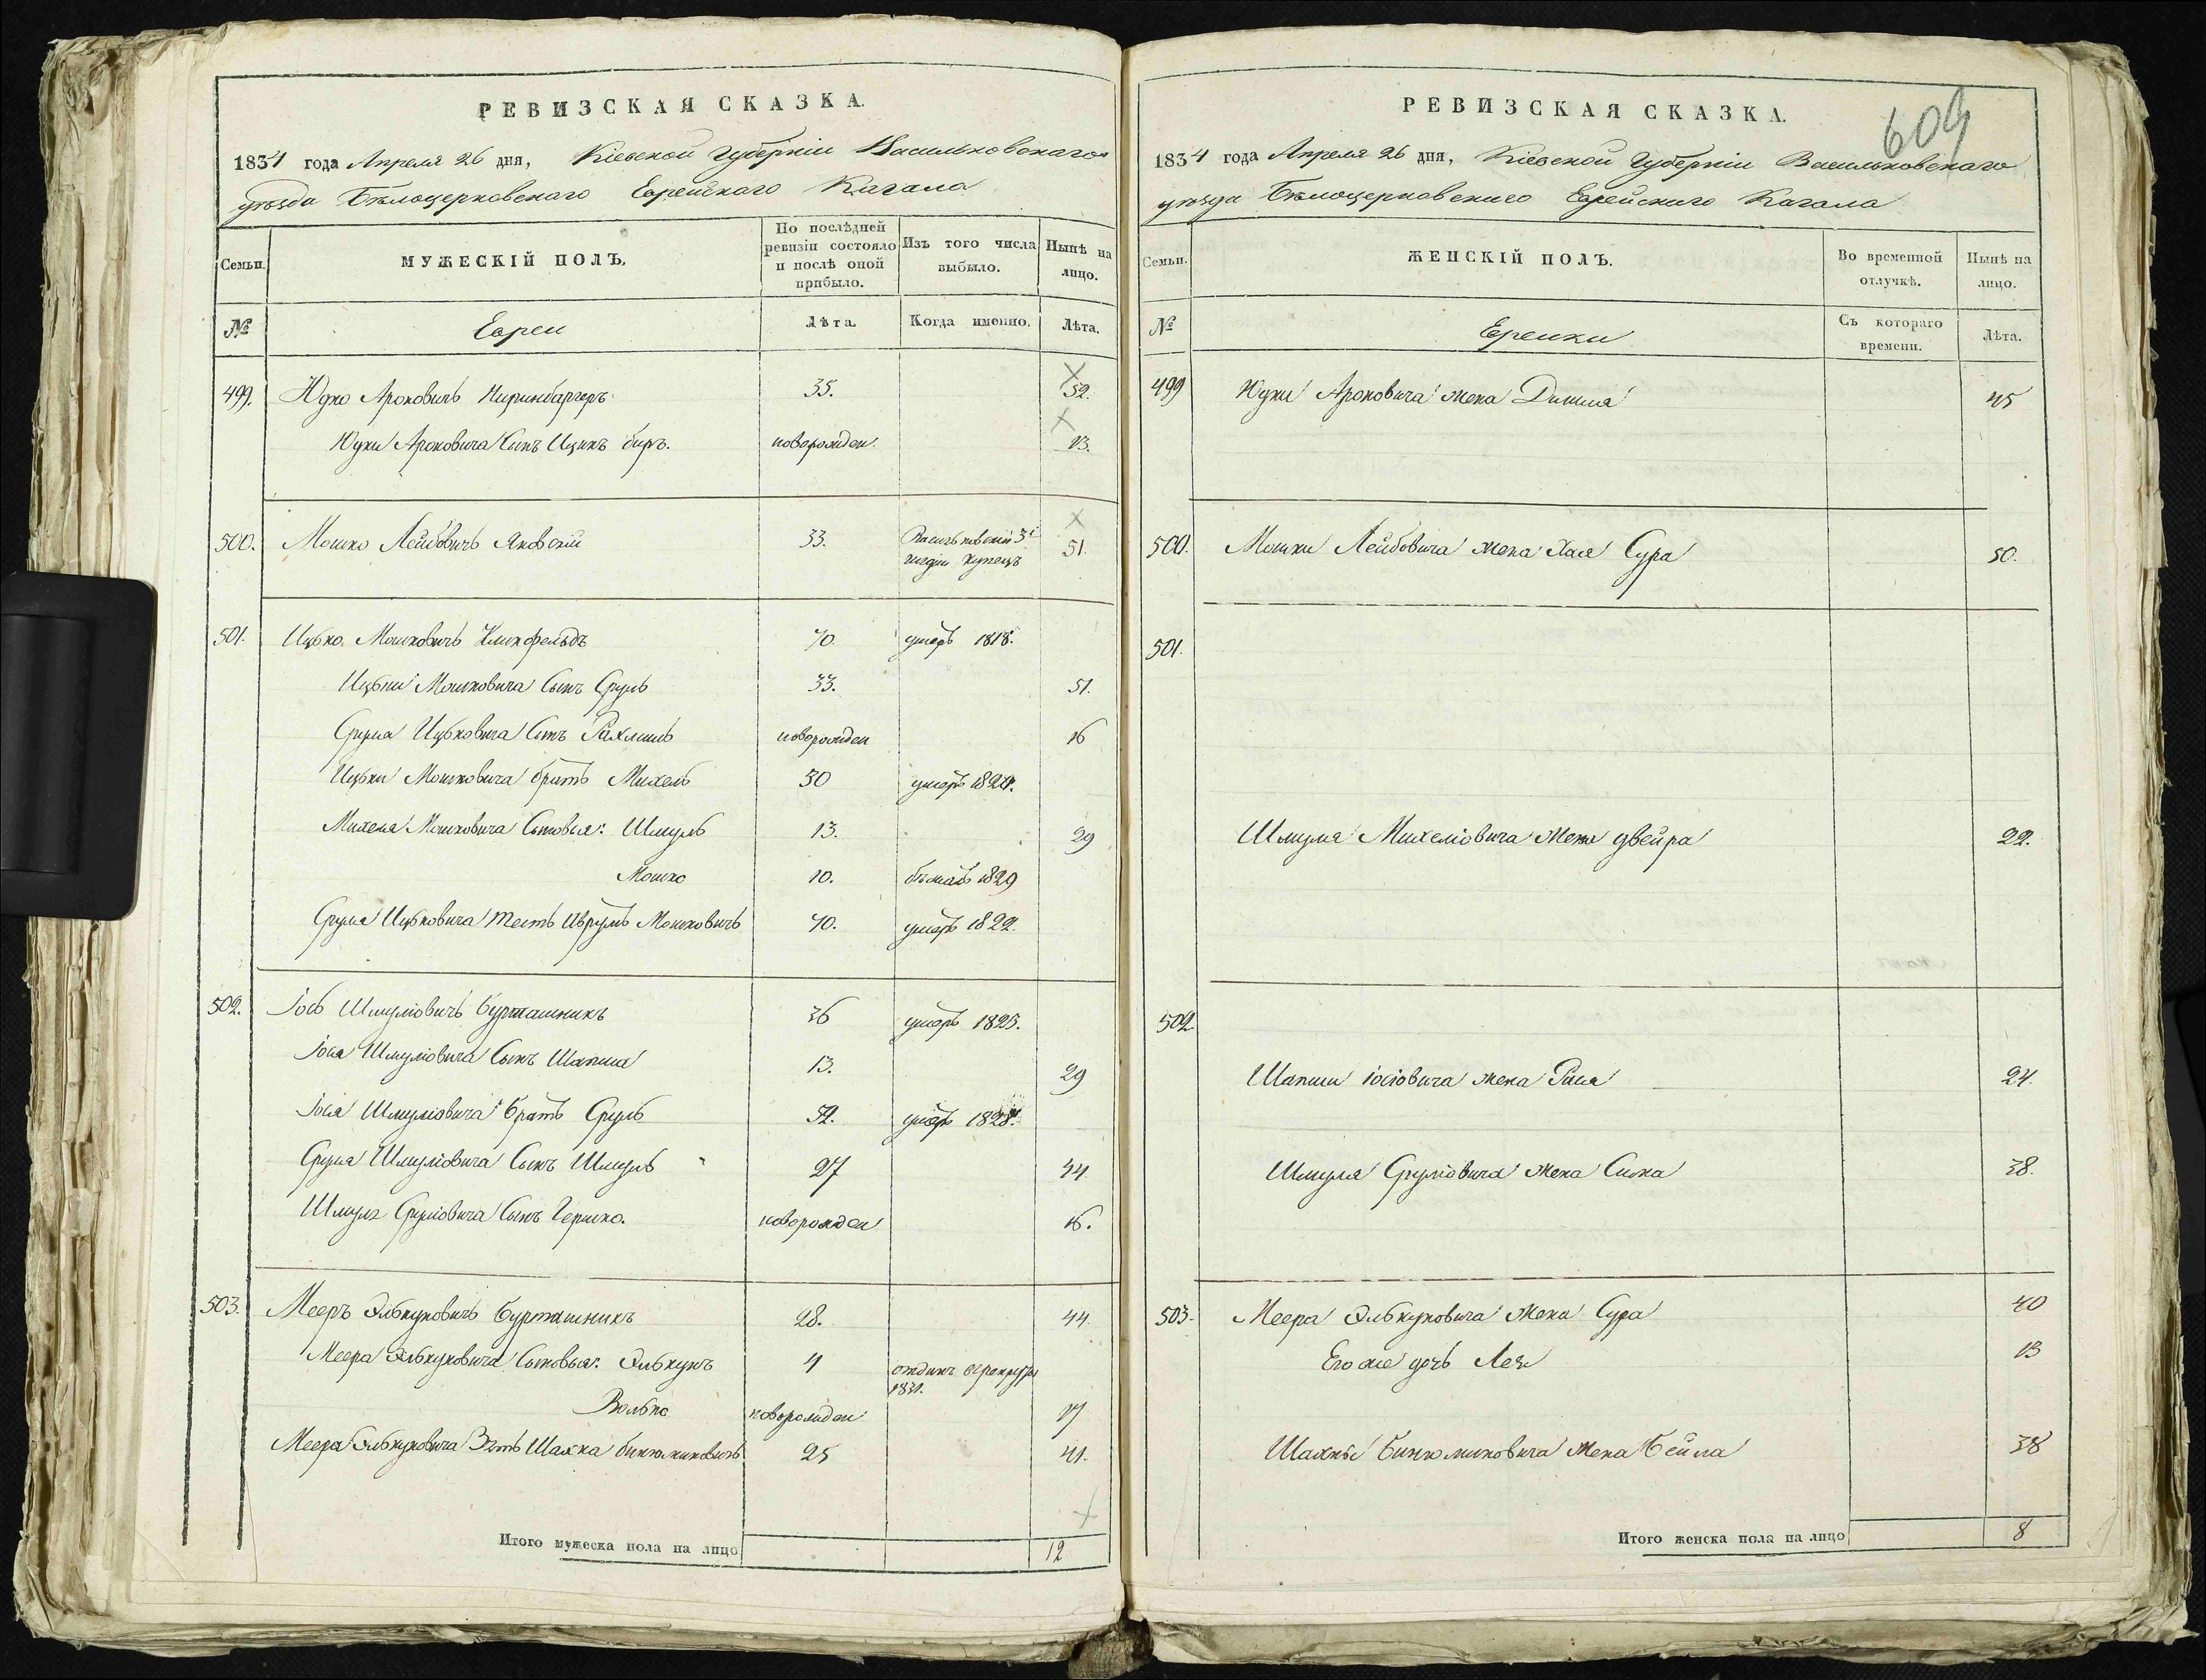 РЕВИЗСКАЯ СКАЗКА.
1834 года Апреля 26 дня, Кіевской Губерніи Васильковскаго
уѣзда Бѣлоцерковскаго Еврейскаго Кагала
Семьи.
МУЖЕСКІЙ ПОЛЪ.
По послѣдней ревизіи состояло и послѣ оной прибыло.
Изъ того числа выбыло.
Нынѣ на лицо.
№
Евреи
Лѣта.
Когда именно.
Лѣта.
499. Юдко Ароновичъ 35. 52.
Юдки Ароновича Сынъ Ицикъ беръ. новорожден. 23.
500. Мошко Лейбовичъ Яновскій 33. Васильковскій 3й гилдіи купецъ 51.
501. Ицько Мошковичъ Клинфельдъ 70. умеръ 1818.
Ицьки Мошковича Сынъ Сруль 33. 51.
Сруля Ицьковича Сынъ Рахмиль новорожден 16
Ицьки Мошковича братъ Михель 50 умеръ
Михеля Мошковича Сыновья: Шмуль 13. 29
Мошко 10. бѣжалъ 1829
Сруля Ицьковича тесть Иврумъ Мошковичъ 70. умеръ 1822.
502. Іось Шмуліовичъ Бурташникъ 36 умеръ 1825.
Іося Шмуліовича Сынъ Шапша 13. 29
Іося Шмуліовича братъ Сруль 52. умеръ 1828.
Сруля Шмуліовича Сынъ Шмуль 27 44
Шмуля Сруліовича Сынъ Гершко. новорожден 16.
503. Мееръ Элькуновичъ Бурташникъ 28. 44.
Меера Элькуновича Сыновья: Элькунъ 4 отданъ в рекруты 1831.
Волько новорожден 17
Меера Элькуновича Зять Шахна бинюминовичъ 25 41.
Итого мужеска пола на лицо 12
РЕВИЗСКАЯ СКАЗКА.
609
1834 года Апреля 26 дня, Кіевской Губерніи Васильковскаго
уѣзда Бѣлоцерковскаго Еврейскаго Кагала
Семьи.
ЖЕНСКІЙ ПОЛЪ.
Во временной отлучкѣ.
Нынѣ на лицо.
№
Евреики
Съ котораго времени.
Лѣта.
499 Юдки Ароновича жена 45
500. Мошки Лейбовича жена Хая Сура 50.
501.
Шмуля Михеліовича жена двейра 22.
502.
Шапши Іосіовича жена 24.
Шмуля Сруліовича жена Сима 38.
503. Меера Элькуновича жена Сура 40
Его же дочь Лея 13
Шахны Бинюминовича жена Бейла 38
Итого женска пола на лицо 8